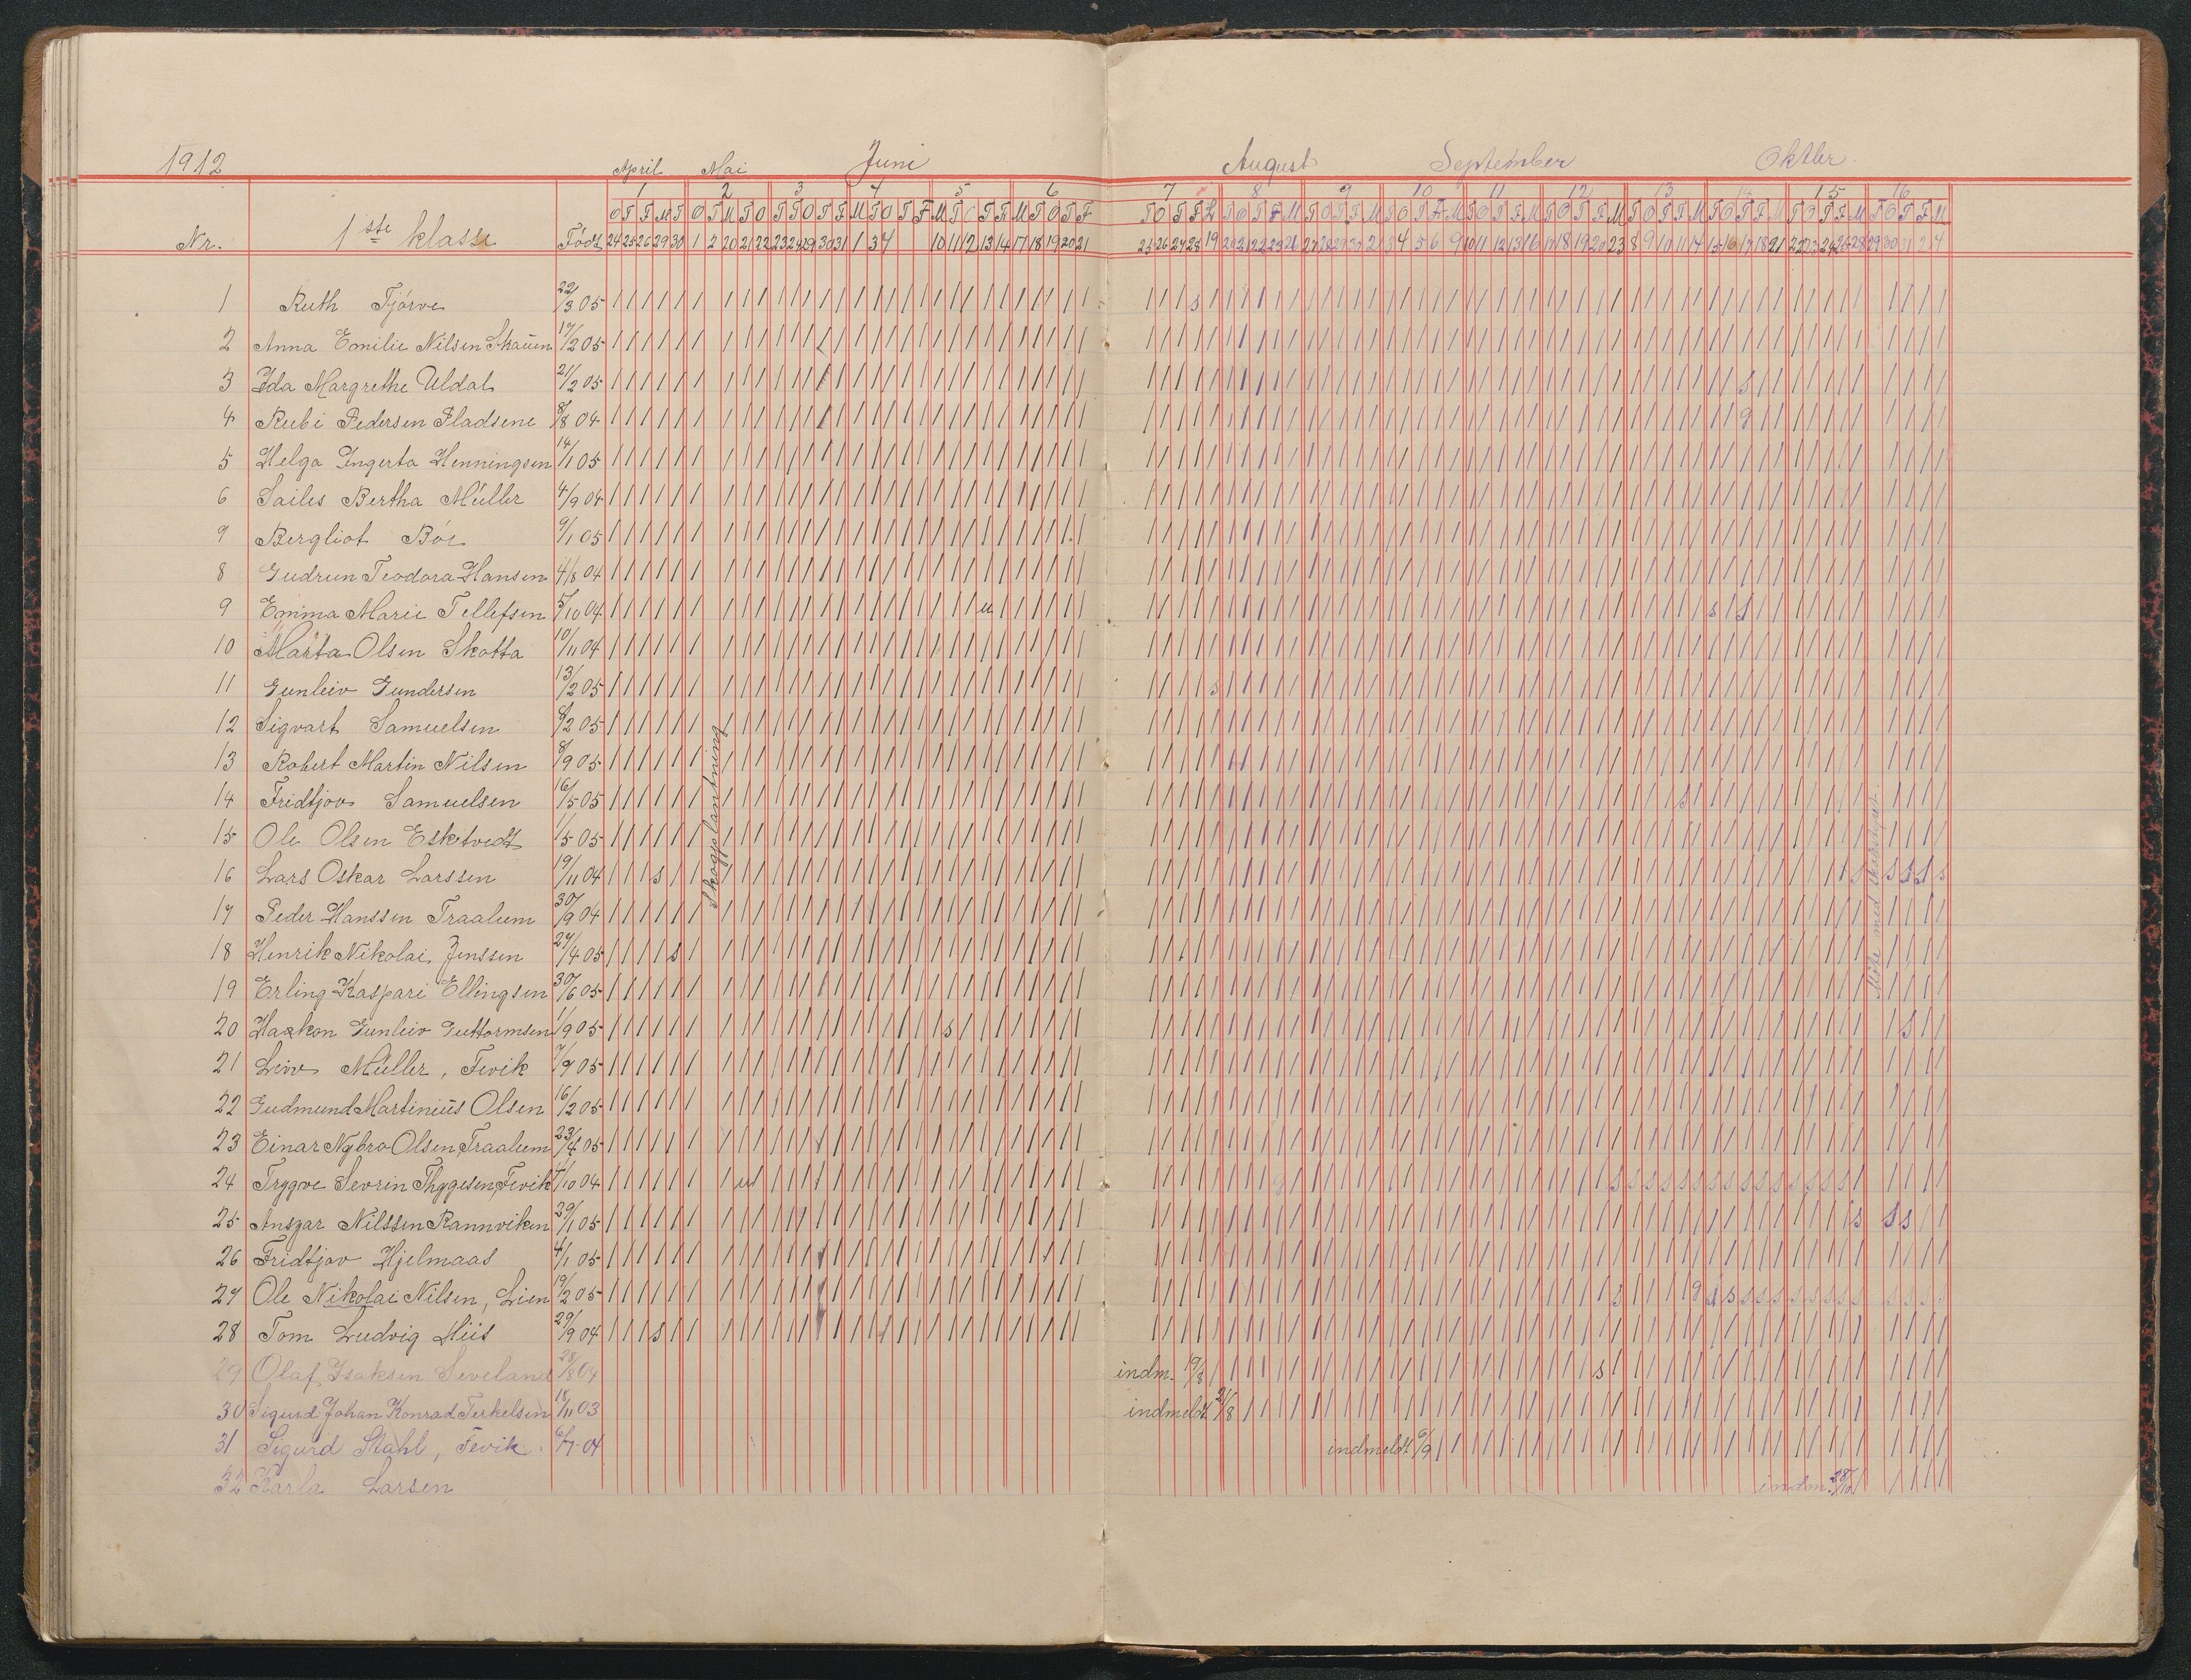 1912 April Mai Juni August September Oktbr.
1 2 3 4 5 6 7 8 9 10 11 12 13 14 15 16
Nr. 1ste klasse Født
1 Ruth Tjörve 22/3 05
2 Anna Emilie Nilsen Skauen 19/2 05
3 Ida Margrethe Uldal 21/2 05
4 Rubi Pedersen Pladsene 8/8 04
5 Helga Ingerta Henningsen 14/1 05
6 Sailes Bertha Müller 4/9 04
7 Bergliot Böe 9/1 05
8 Gudrun Teodora Hansen 4/8 04
9 Emma Marie Tellefsen 5/10 04 u s s
10 Marta Olsen Skotta 10/11 04
11 Gunleiv Gundersen 13/2 05 s
12 Sigvart Samuelsen 8/2 05
13 Robert Martin Nilsen 8/9 05
14 Fridtjov Samuelsen 16/5 05 s
15 Ole Olsen Esketvedt 1/5 05
16 Lars Oskar Larssen 19/11 04 s s s s s s
17 Peder Hanssen Traalum 30/9 04
18 Henrik Nikolai Jenssen 27/4 05 s
19 Erling Kaspari Ellingsen 30/6 05
20 Haakon Gunleiv Guttormsen 1/9 05 s s
21 Livv Müller, Fevik 7/9 05
22 Gudmund Martinius Olsen 16/2 05
23 Einar Nybro Olsen Traalum 23/4 05
24 Trygve Sevrin Thygesen, Fevik 1/10 04 u s s s s s s s s s s s s s s s
25 Ansgar Nilssen Rannviken 29/1 05 s s s
26 Fridtjov Hjelmaas 4/1 05
27 Ole Nikolai Nilsen, Lien 19/2 05 s g s s s s s s s s s s s s s s
28 Tom Ludvig Hiis 29/9 04 s
29 Olaf Isaksen Seveland 28/8 04 indm. 19/8 s
30 Sigurd Johan Konrad Terkelsen 18/11 03 indmeldt 21/8
31 Sigurd Stahl, Fevik. 6/7 04 indmeldt 6/9
32 Karla Larsen indm. 28/10
Skogplantning
Möte med